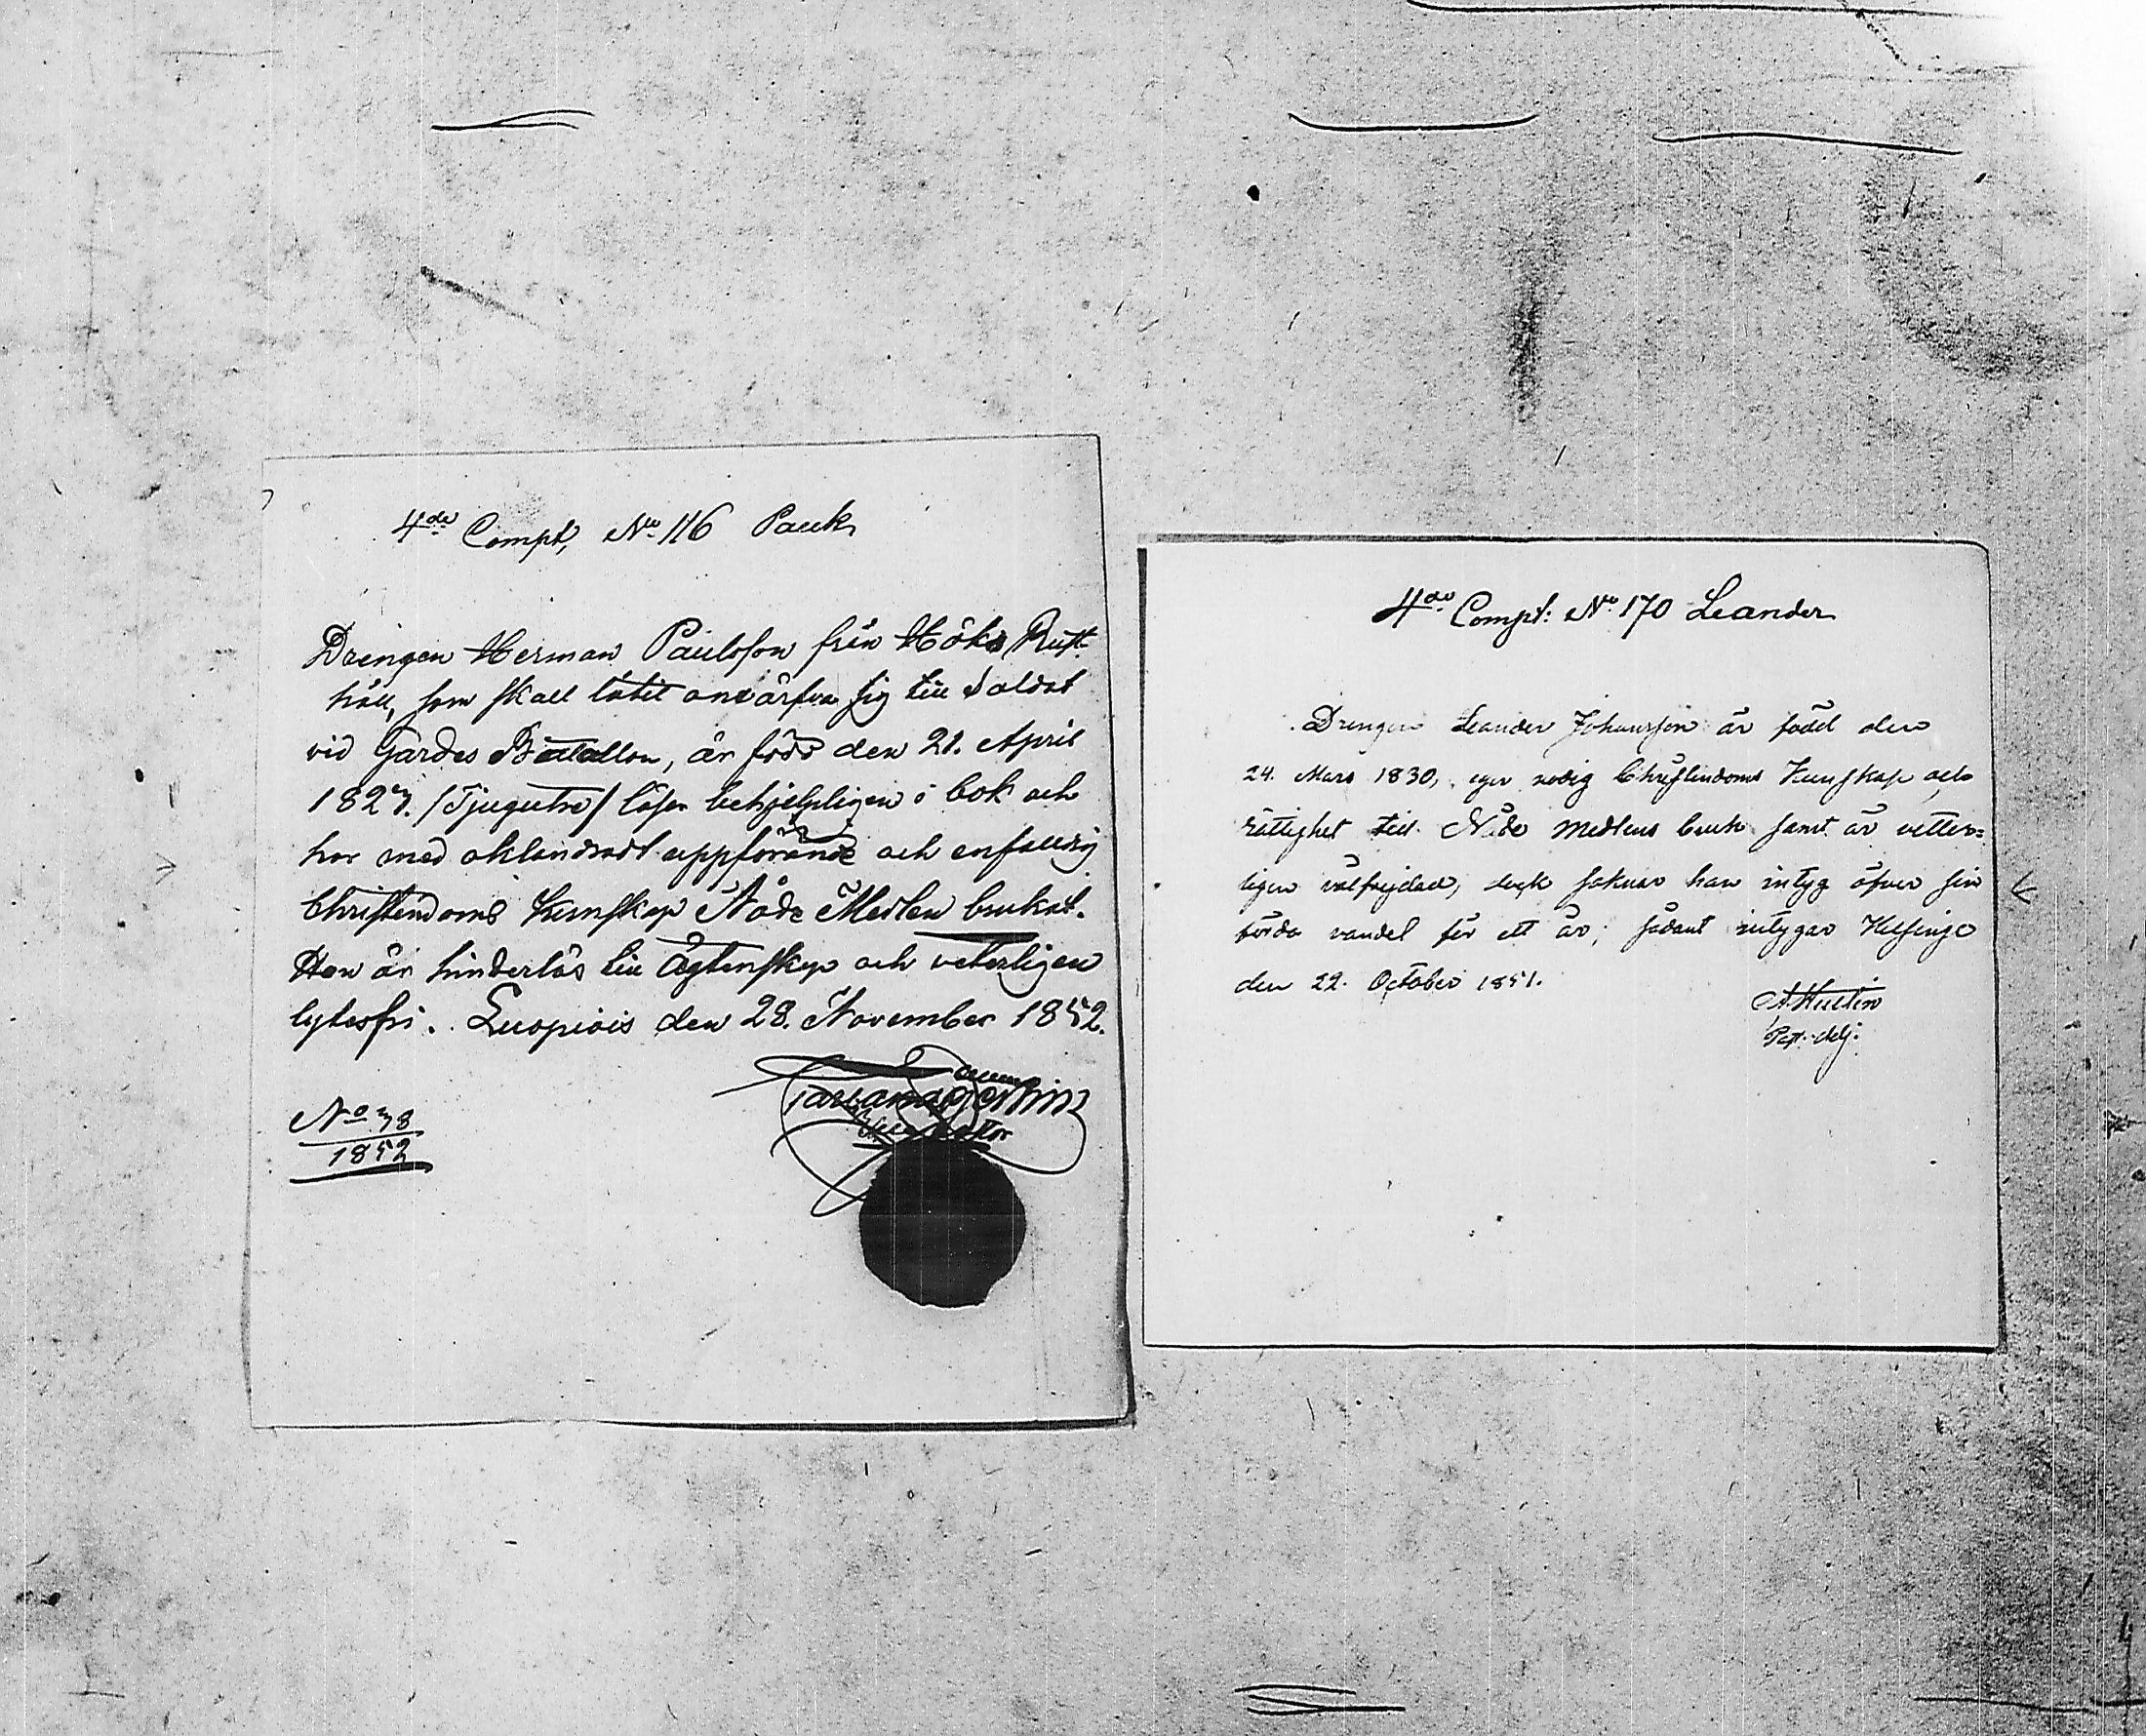 4de Compt, No 116 Pauk
Drengen Herman Paulsson från Höks Rust-
håll, som skall låtit anvärfva sig till Soldat
vid Gardes Batallon, är född den 21. April
1823. /Tjugutre/ läser behjelpligen i bok och
har med oklandradt uppförande och enfaldig
Christendoms Kunskap Nåde Medlen brukat.
Han är hinderlös till Ägtenskap och veterligen
lytesfri. Luopiois den 28. November 1852.
No 38
1852
4de Compt: No 170 Leander
Drengen Leander Johansson är född den
24. Mars 1830, eger nödig Christendoms Kunskap och
rättighet till Nåde Medlens bruk samt är vetter=
ligen välfrejdad, dock saknar han intyg öfver sin
förda vandel för ett år; sådant intygar Helsinge
den 22. October 1851.
A. Hultin
Past. adj.